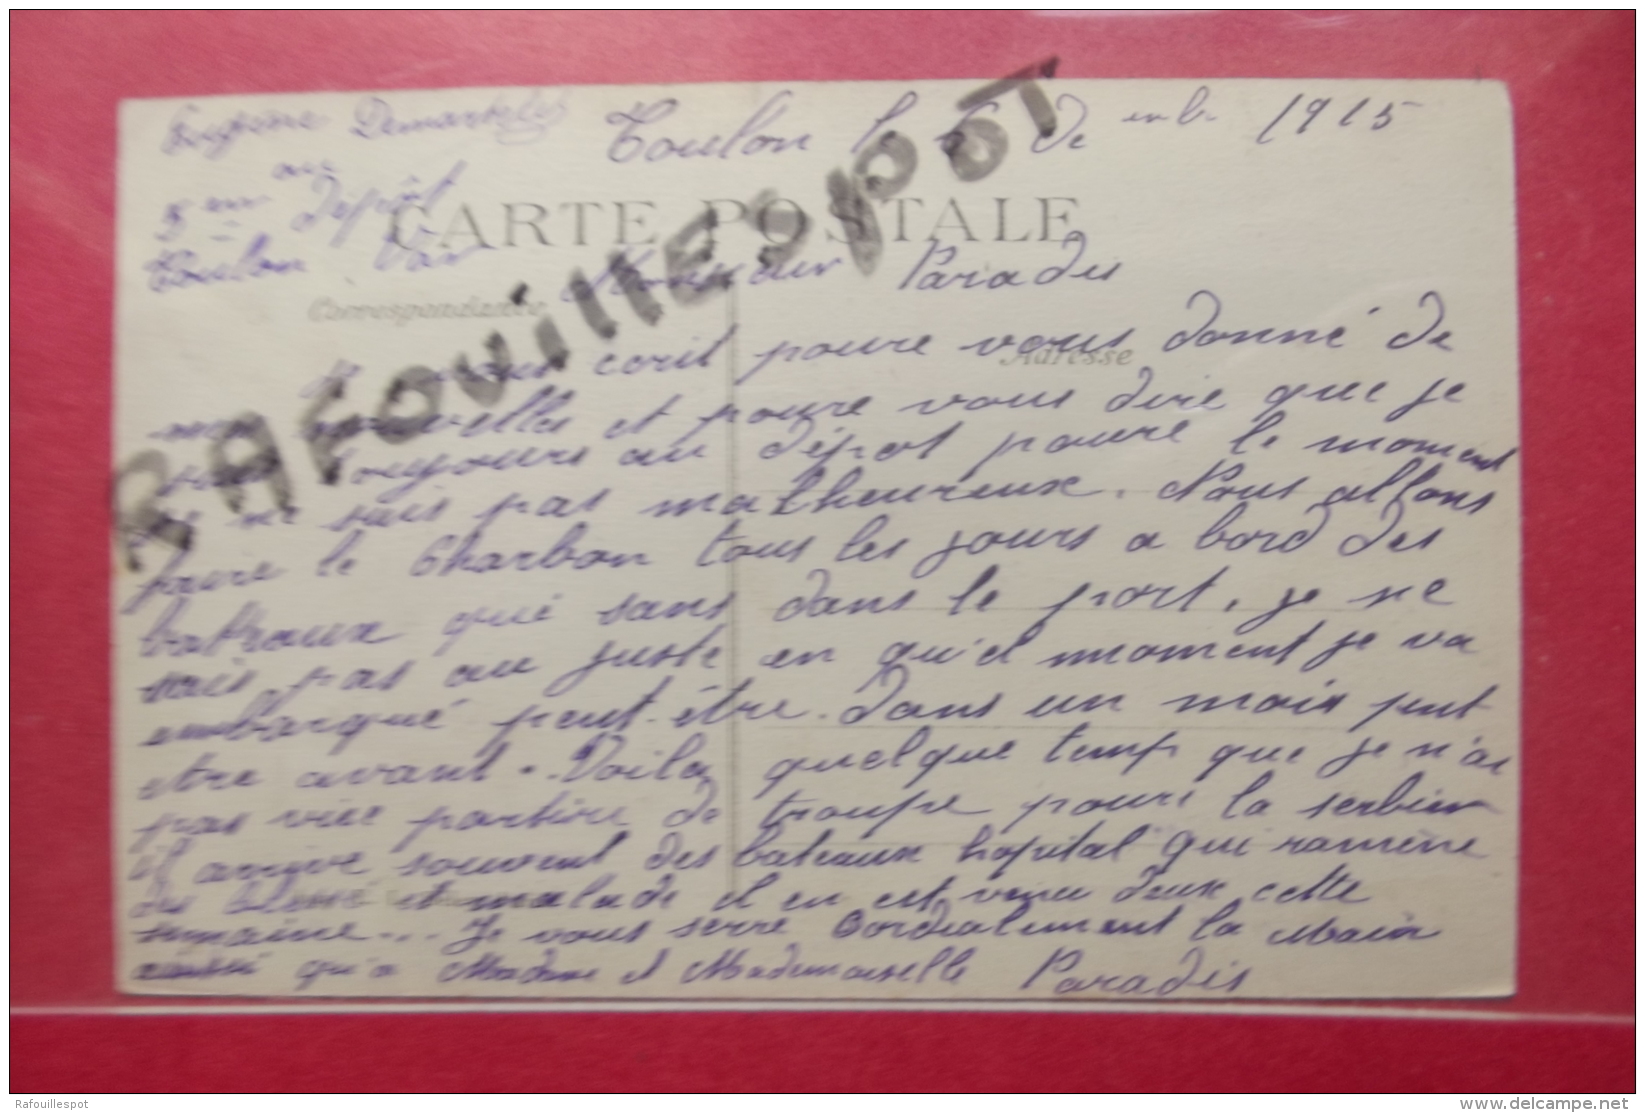 Eugène Demartel
au
5eme Dépôt
Toulon Var
Toulon le 6 de 1915
CARTE POSTALE
Correspondance
Adresse
RAfouillESpoT
Monsieur Paradis
Je vous ecrit poure vous donné de
mes nouvelles et poure vous dire que je
suis toujours au dépot poure le moment
je ne suis pas malheureux. Nous allons
faire le Charbon tous les jours a bord des
bateaux qui sans dans le port, je ne
sais pas au juste en qu'el moment je va
embarqué peut-être. Dans un mois peut
etre avant. Voila quelque temp que je n'ai
pas vue partire de troupe poure la serbie
il arrive souvent des bateaux hopital qui ramène
des blessé et malade il en est venu deux cette
semaine... Je vous serre Cordialement la Main
ainsi qu'a Madame et Mademoiselle Paradis
Rafouillespot
delcampe.net